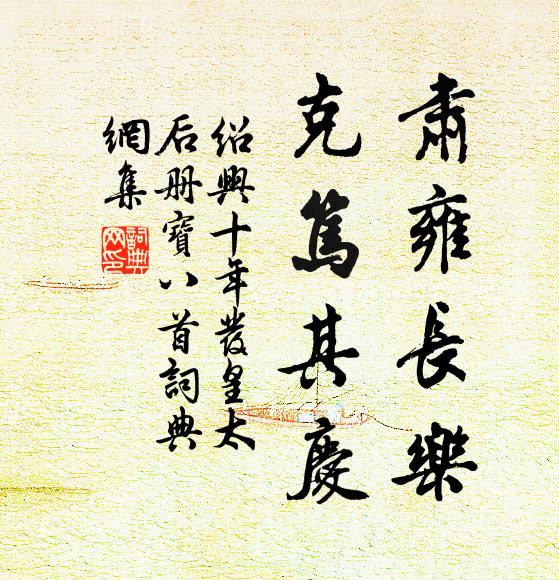 肅雍長樂
克篤其慶
紹興十年發皇太
后册寶八首詞典
網集
詞典網印